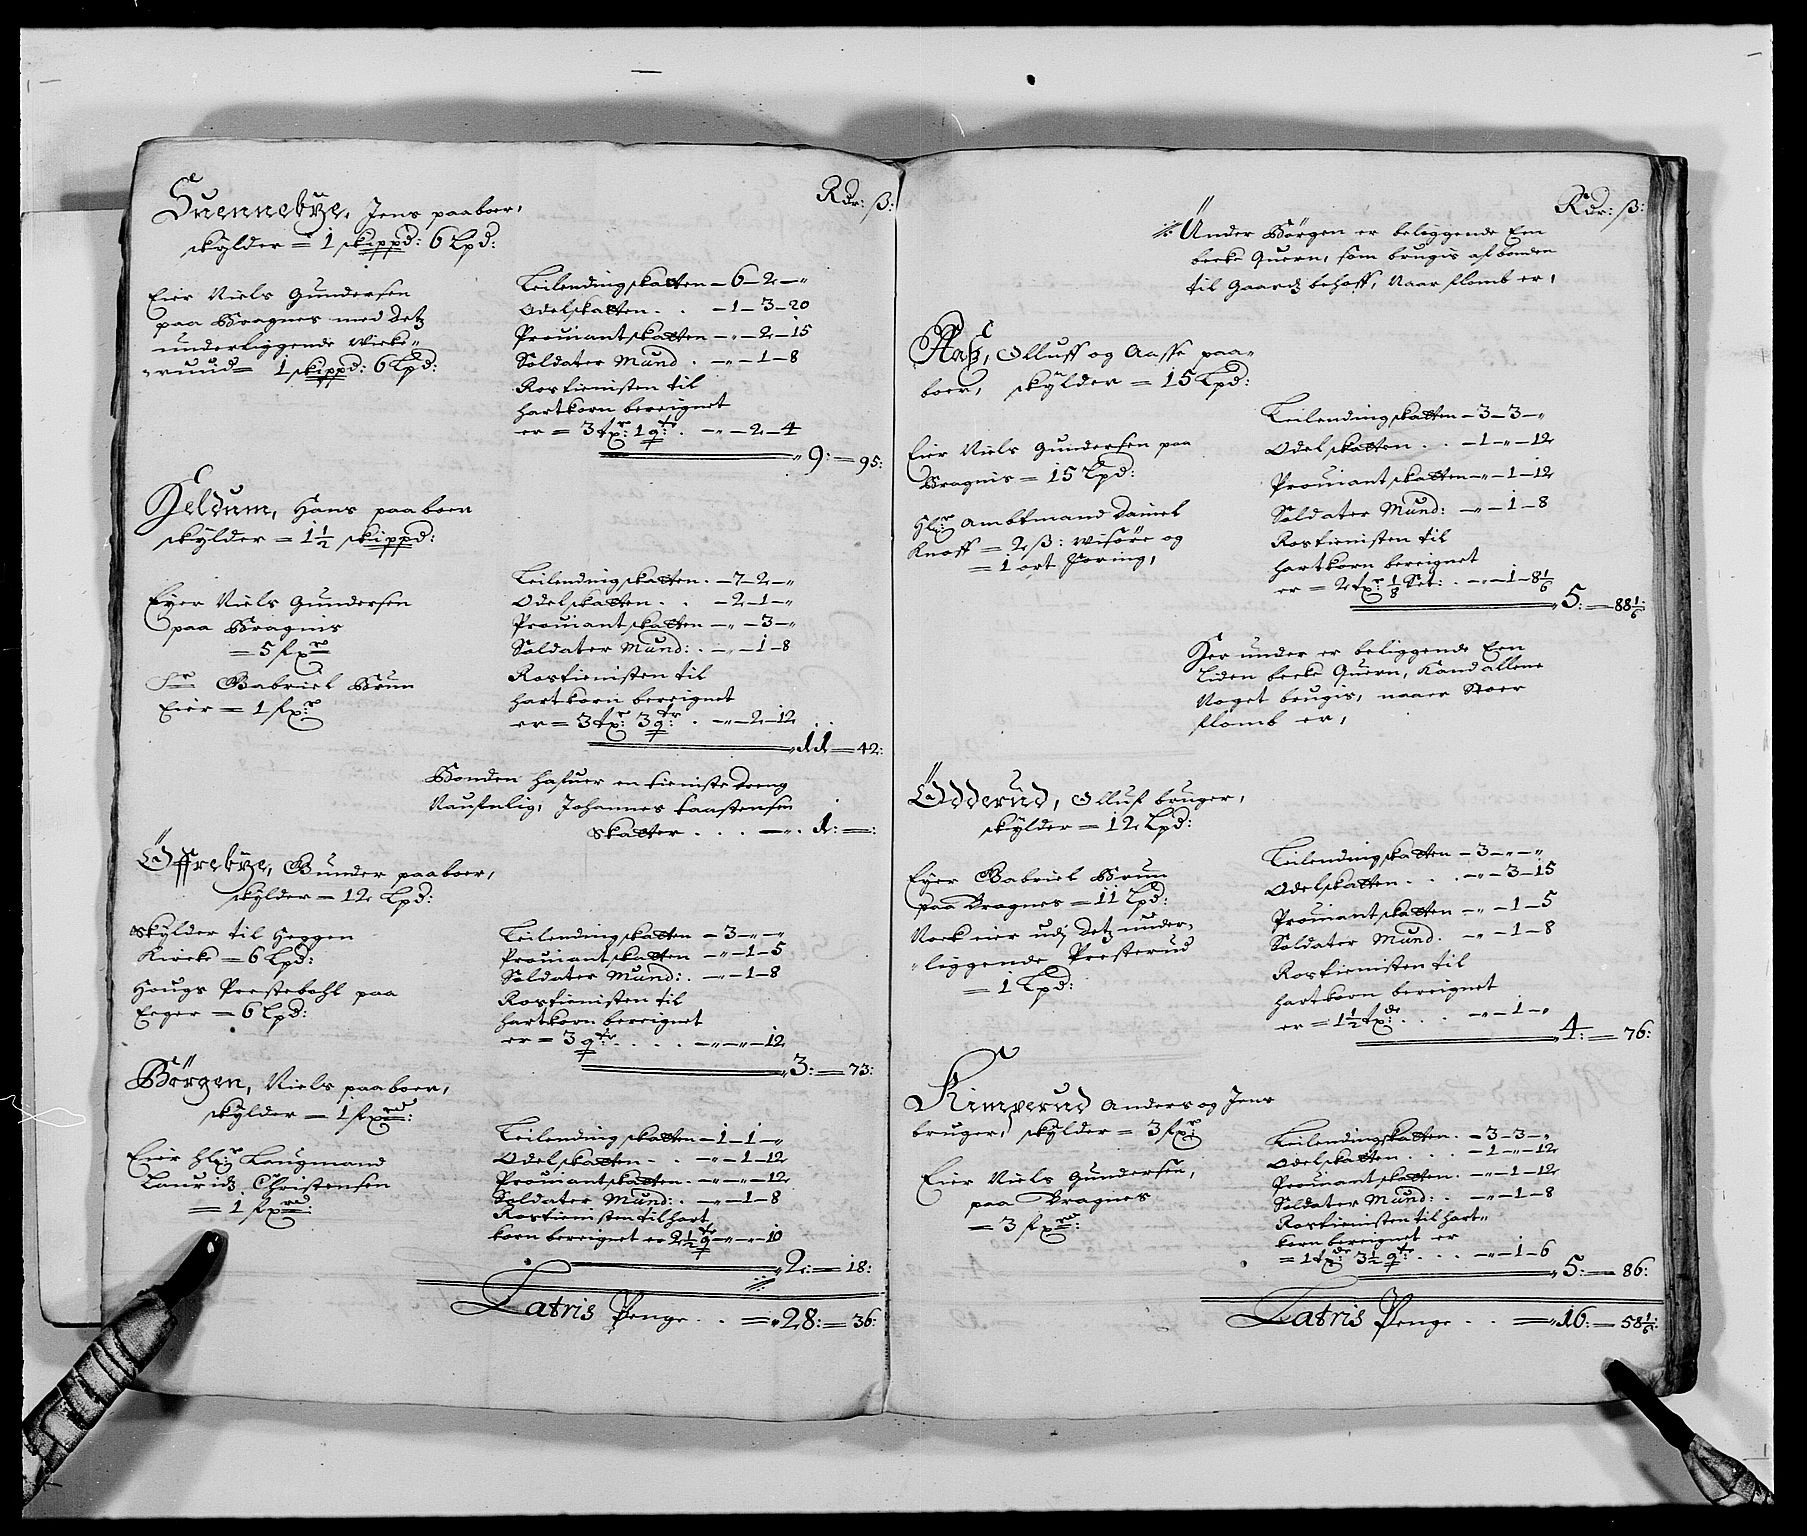 Rdr: ß:
Suennebÿe, Jens paaboer,
skÿlder = 1 skippd: 6 Lpd:
Eier Niels Gundersen
paa Bragnes med Detz
underliggende Wirke-
-ruud = 1 skippd: 6 Lpd:
Leilendingskatten - 6 - 2 - "
Odelskatten . . - 1 - 3 - 20
Prouiantskatten - " - 2 - 15
Soldater Mund . - " - 1 - 8
Rostienisten til
hartkorn bereignet
er = 3 txr: 1 qtr: . - " - 2 - 4
9: = 95:
Jeldum, Hans paaboer
skÿlder = 1 1/2 skippd:
Eÿer Niels Gundersen
paa Bragnis
= 5 fxr
Sr Gabriel Brun
Eier = 1 fxr:
Leilendingskatten . - 7 - 2 - "
Odelskatten . . - 2 - 1 - "
Prouiantskatten - " - 3 - "
Soldater Mund: . - " - 1 - 8
Rostienisten til
hartkorn bereignet
er = 3 txr: 3 qtr: . - " - 2 - 12
11 = 42:
Bonden hafuer en tieniste dreng
Naufnlig, Johannes Taastensen
skatter . . . - " . 1: = :
Öffrebÿe, Gunder paaboer,
skÿlder = 12 Lpd:
Skÿlder til Heggen
Kircke = 6 Lpd:
Hougs Prestebohl paa
Eeger = 6 Lpd:
Leilendingskatten - 3 - " - "
Prouiantskatten - " - 1 - 5
Soldater Mund: . - " - 1 - 8
Rostienisten til
hartkorn bereignet
er = 3 qtr . . . . - " - " - 12
3: = 73:
Börgen, Niels paaboer,
skÿlder = 1 fxrd:
Eier Hlr: Laugmand
Lauridz Christensen
= 1 fxrd:
Leilendingskatten - 1 - 1 - "
Odelskatten . . - " - 1 - 12
Prouiantskatten . - " - " - 12
Soldater Mund: . - " - 1 - 8
Rostienisten til hart,
korn bereignet er 2 1/2 qtr - " - " - 10
2: = 18:
Latris Penge . . = 28: = 36:
Rdr: ß:
Under Börgen er beliggende Een
becke Quern, som brugis af bonden
til Gaardz behoff, Naar flomb er,
Aaß, Olluff og Aasse paa-
boer, skÿlder = 15 Lpd:
Eier Niels Gundersen paa
Bragnis = 15 Lpd:
Hlr: Ambtmand Daniel
Knoff = 2 ß: Wisöre og
= 1 ort foring,
Leilendingskatten - 3 - 3 - "
Odelskatten . . - 1 - " - 12
Prouiantskatten - " - 1 - 12
Soldater Mund: - " - 1 - 8
Rostienisten til
hartkorn bereignet
er = 2 txr: 1/8 Set: . - " - 1 - 8 1/6
5: = 88 1/6:
Her under er beliggende Een
Liden becke Quern, Kand allene
Noget brugis, naaer Stoer
flomb er,
Ödderud, Olluf bruger,
skÿlder = 12 Lpd:
Eÿer Gabriel Brun
paa Bragnes = 11 Lpd:
Nock eier udj Detz under-
-liggende Presterud
= 1 Lpd:
Leilendingskatten - 3 - " - "
Odelskatten . . . - " - 3 - 15
Prouiantskatten - " - 1 - 5
Soldater Mund . - " - 1 - 8
Rostienisten til
hartkorn bereignet
er = 1 1/2 txde: . . . - " - 1 - "
4: = 76:
Kimperud Anders og Jens
bruger, skÿlder = 3 fxr:
Eier Niels Gundersen,
paa Bragnes
= 3 fxrd:
Leilendingskatten . - 3 - 3 - "
Odelskatten . . . - 1 - " - 12
Prouiantskatten . - " - 1 - 12
Soldater Mund: . - " - 1 - 8
Rostienisten til hart-
korn bereignet er
= 1 txde: 3 1/2 qtr: . . . - " - 1 - 6
5: = 86:
Latris Penge . . = 16: = 58 1/6: